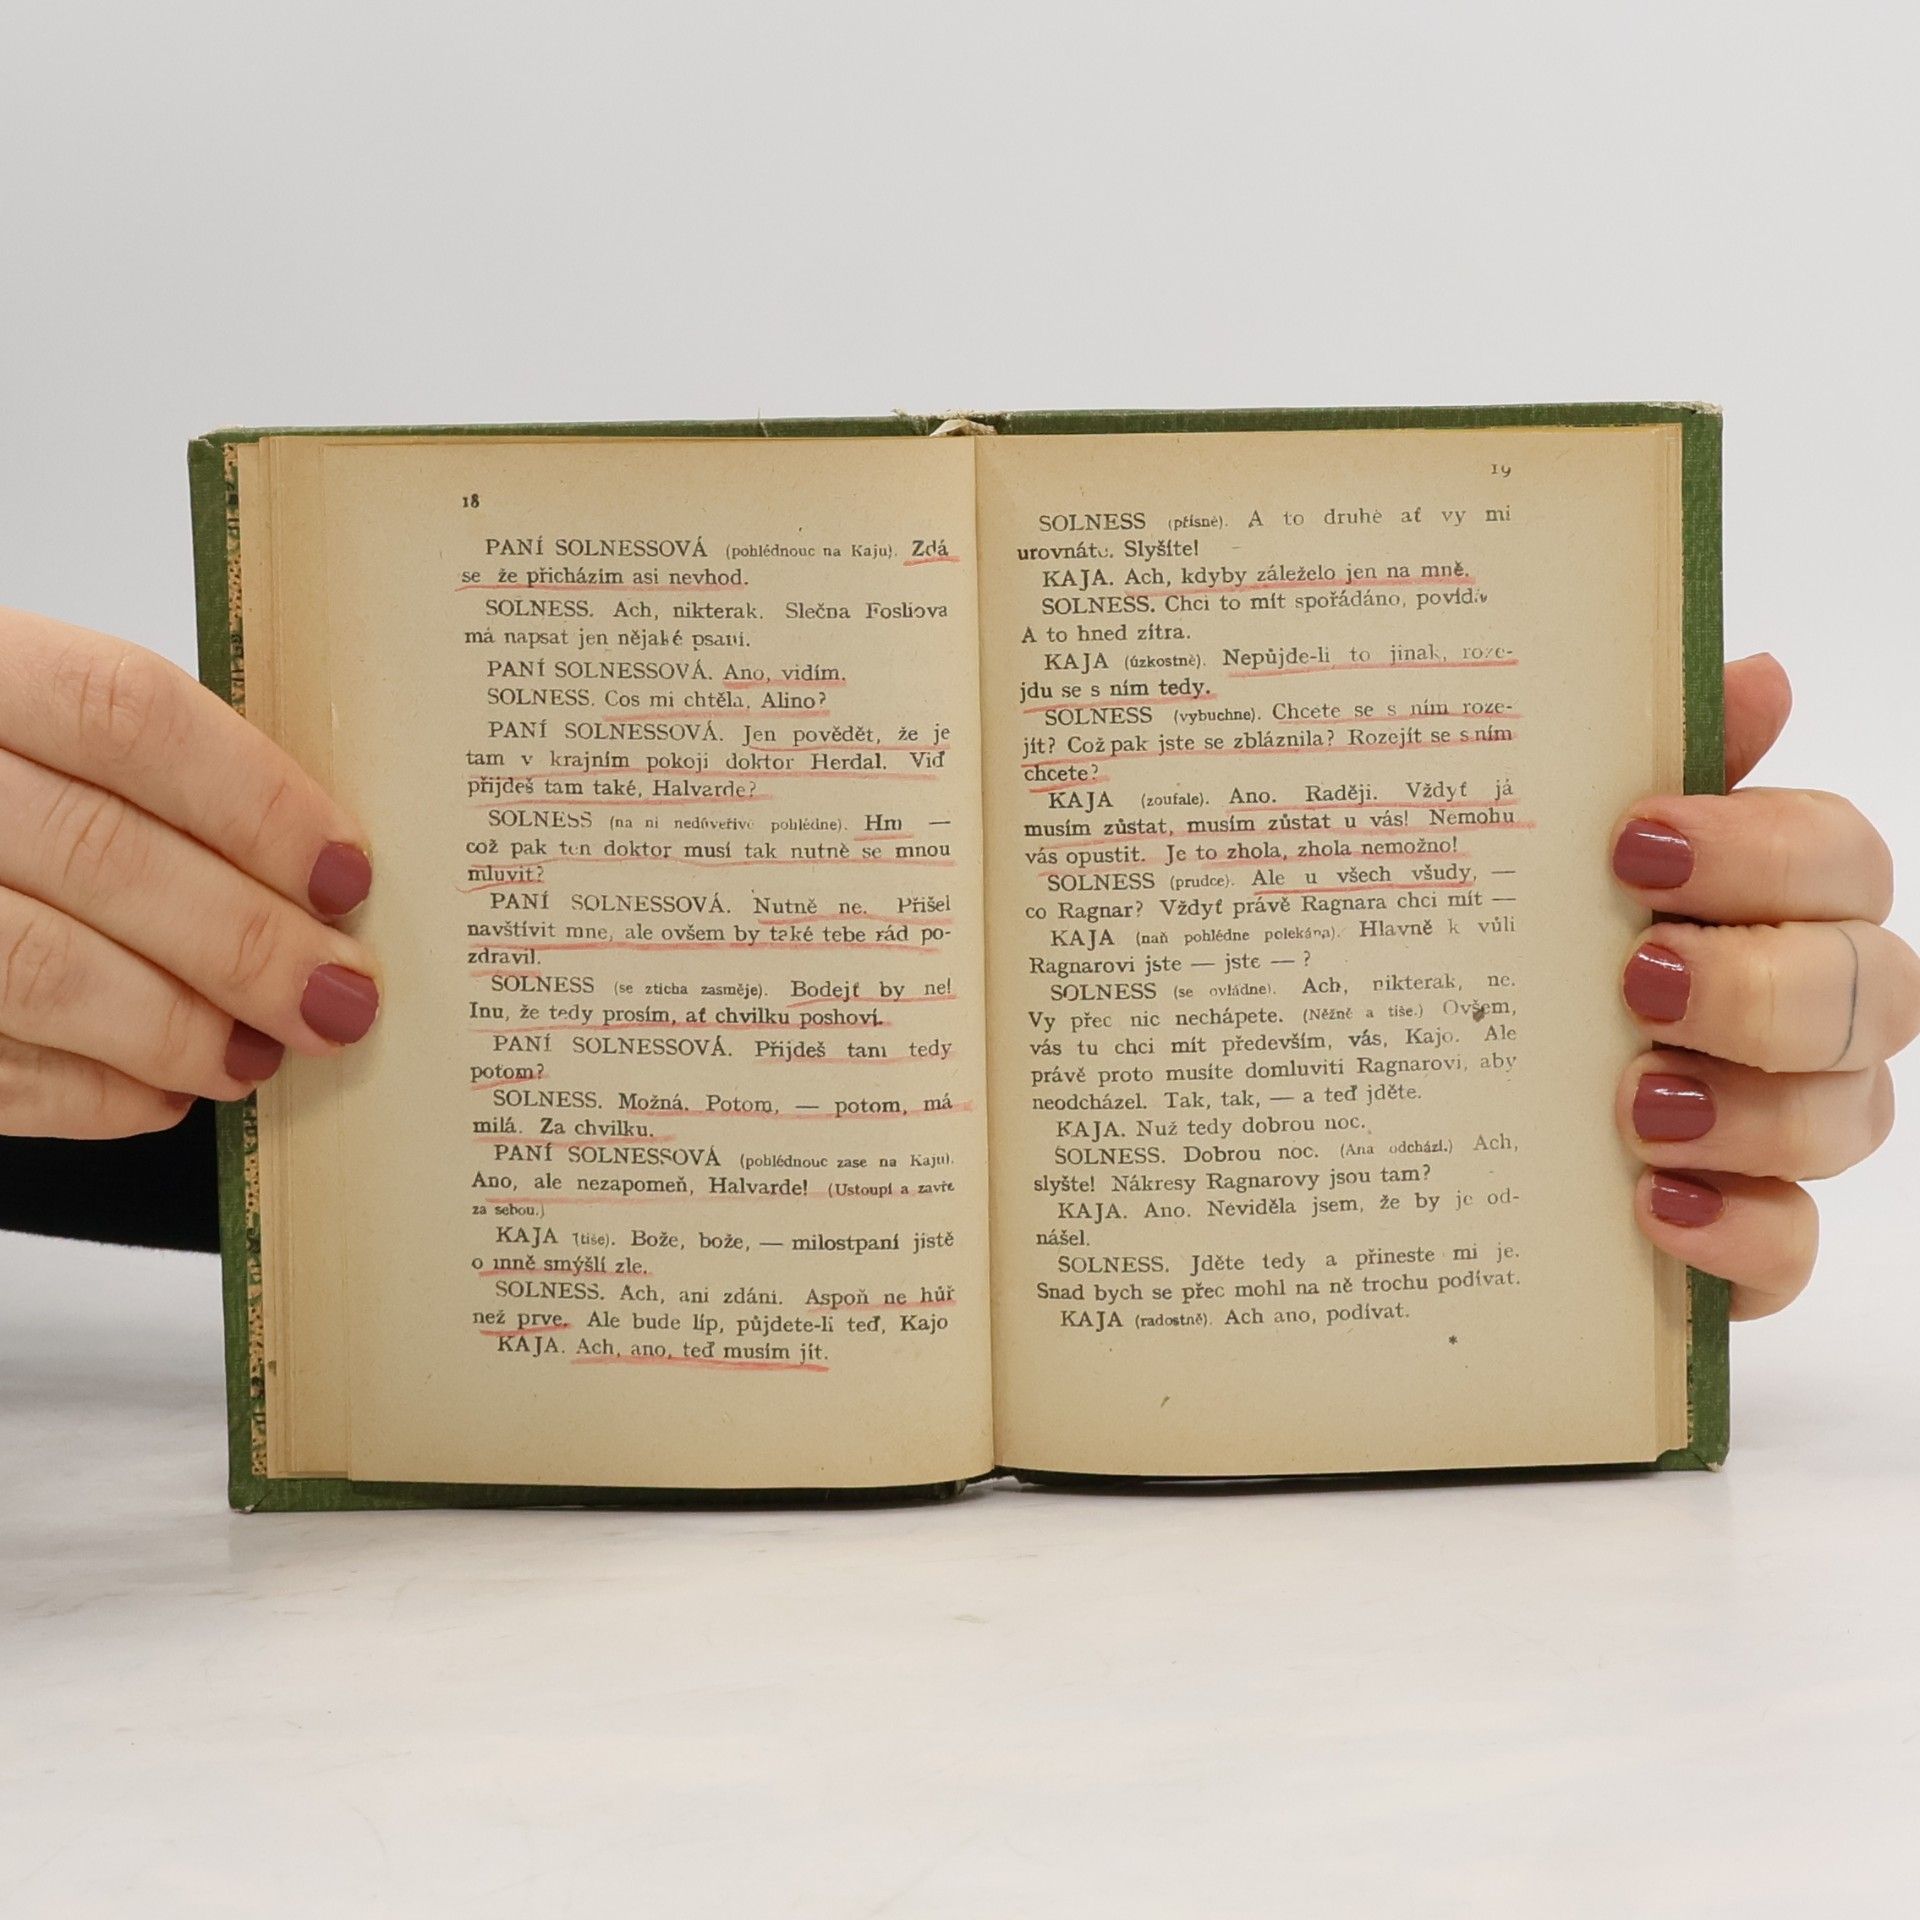 18
PANÍ SOLNESSOVÁ (pohlédnouc na Kaju). Zdá
se že přicházím asi nevhod.
SOLNESS. Ach, nikterak. Slečna Fosliova
má napsat jen nějaké psaní.
PANÍ SOLNESSOVÁ. Ano, vidím.
SOLNESS. Cos mi chtěla, Alino?
PANÍ SOLNESSOVÁ. Jen povědět, že je
tam v krajním pokoji doktor Herdal. Viď
přijdeš tam také, Halvarde?
SOLNESS (na ni nedůveřivě pohlédne). Hm —
což pak ten doktor musí tak nutně se mnou
mluvit?
PANÍ SOLNESSOVÁ. Nutně ne. Přišel
navštívit mne, ale ovšem by také tebe rád po-
zdravil.
SOLNESS (se zticha zasměje). Bodejť by ne!
Inu, že tedy prosím, ať chvilku poshoví.
PANÍ SOLNESSOVÁ. Přijdeš tam tedy
potom?
SOLNESS. Možná. Potom, — potom, má
milá. Za chvilku.
PANÍ SOLNESSOVÁ (pohlédnouc zase na Kaju).
Ano, ale nezapomeň, Halvarde! (Ustoupí a zavře
za sebou.)
KAJA (tiše). Bože, bože, — milostpaní jistě
o mně smýšlí zle.
SOLNESS. Ach, ani zdání. Aspoň ne hůř
než prve. Ale bude líp, půjdete-li teď, Kajo
KAJA. Ach, ano, teď musím jít.
19
SOLNESS (přísně). A to druhé ať vy mi
urovnáte. Slyšíte!
KAJA. Ach, kdyby záleželo jen na mně.
SOLNESS. Chci to mít spořádáno, povídám
A to hned zítra.
KAJA (úzkostně). Nepůjde-li to jinak, roze-
jdu se s ním tedy.
SOLNESS (vybuchne). Chcete se s ním roze-
jít? Což pak jste se zbláznila? Rozejít se s ním
chcete?
KAJA (zoufale). Ano. Raději. Vždyť já
musím zůstat, musím zůstat u vás! Nemohu
vás opustit. Je to zhola, zhola nemožno!
SOLNESS (prudce). Ale u všech všudy, —
co Ragnar? Vždyť právě Ragnara chci mít —
KAJA (naň pohlédne polekána). Hlavně k vůli
Ragnarovi jste — jste — ?
SOLNESS (se ovládne). Ach, nikterak, ne.
Vy přec nic nechápete. (Něžně a tiše.) Ovšem,
vás tu chci mít především, vás, Kajo. Ale
právě proto musíte domluviti Ragnarovi, aby
neodcházel. Tak, tak, — a teď jděte.
KAJA. Nuž tedy dobrou noc.
SOLNESS. Dobrou noc. (Ana odchází.) Ach,
slyšte! Nákresy Ragnarovy jsou tam?
KAJA. Ano. Neviděla jsem, že by je od-
nášel.
SOLNESS. Jděte tedy a přineste mi je.
Snad bych se přec mohl na ně trochu podívat.
KAJA (radostně). Ach ano, podívat.
*